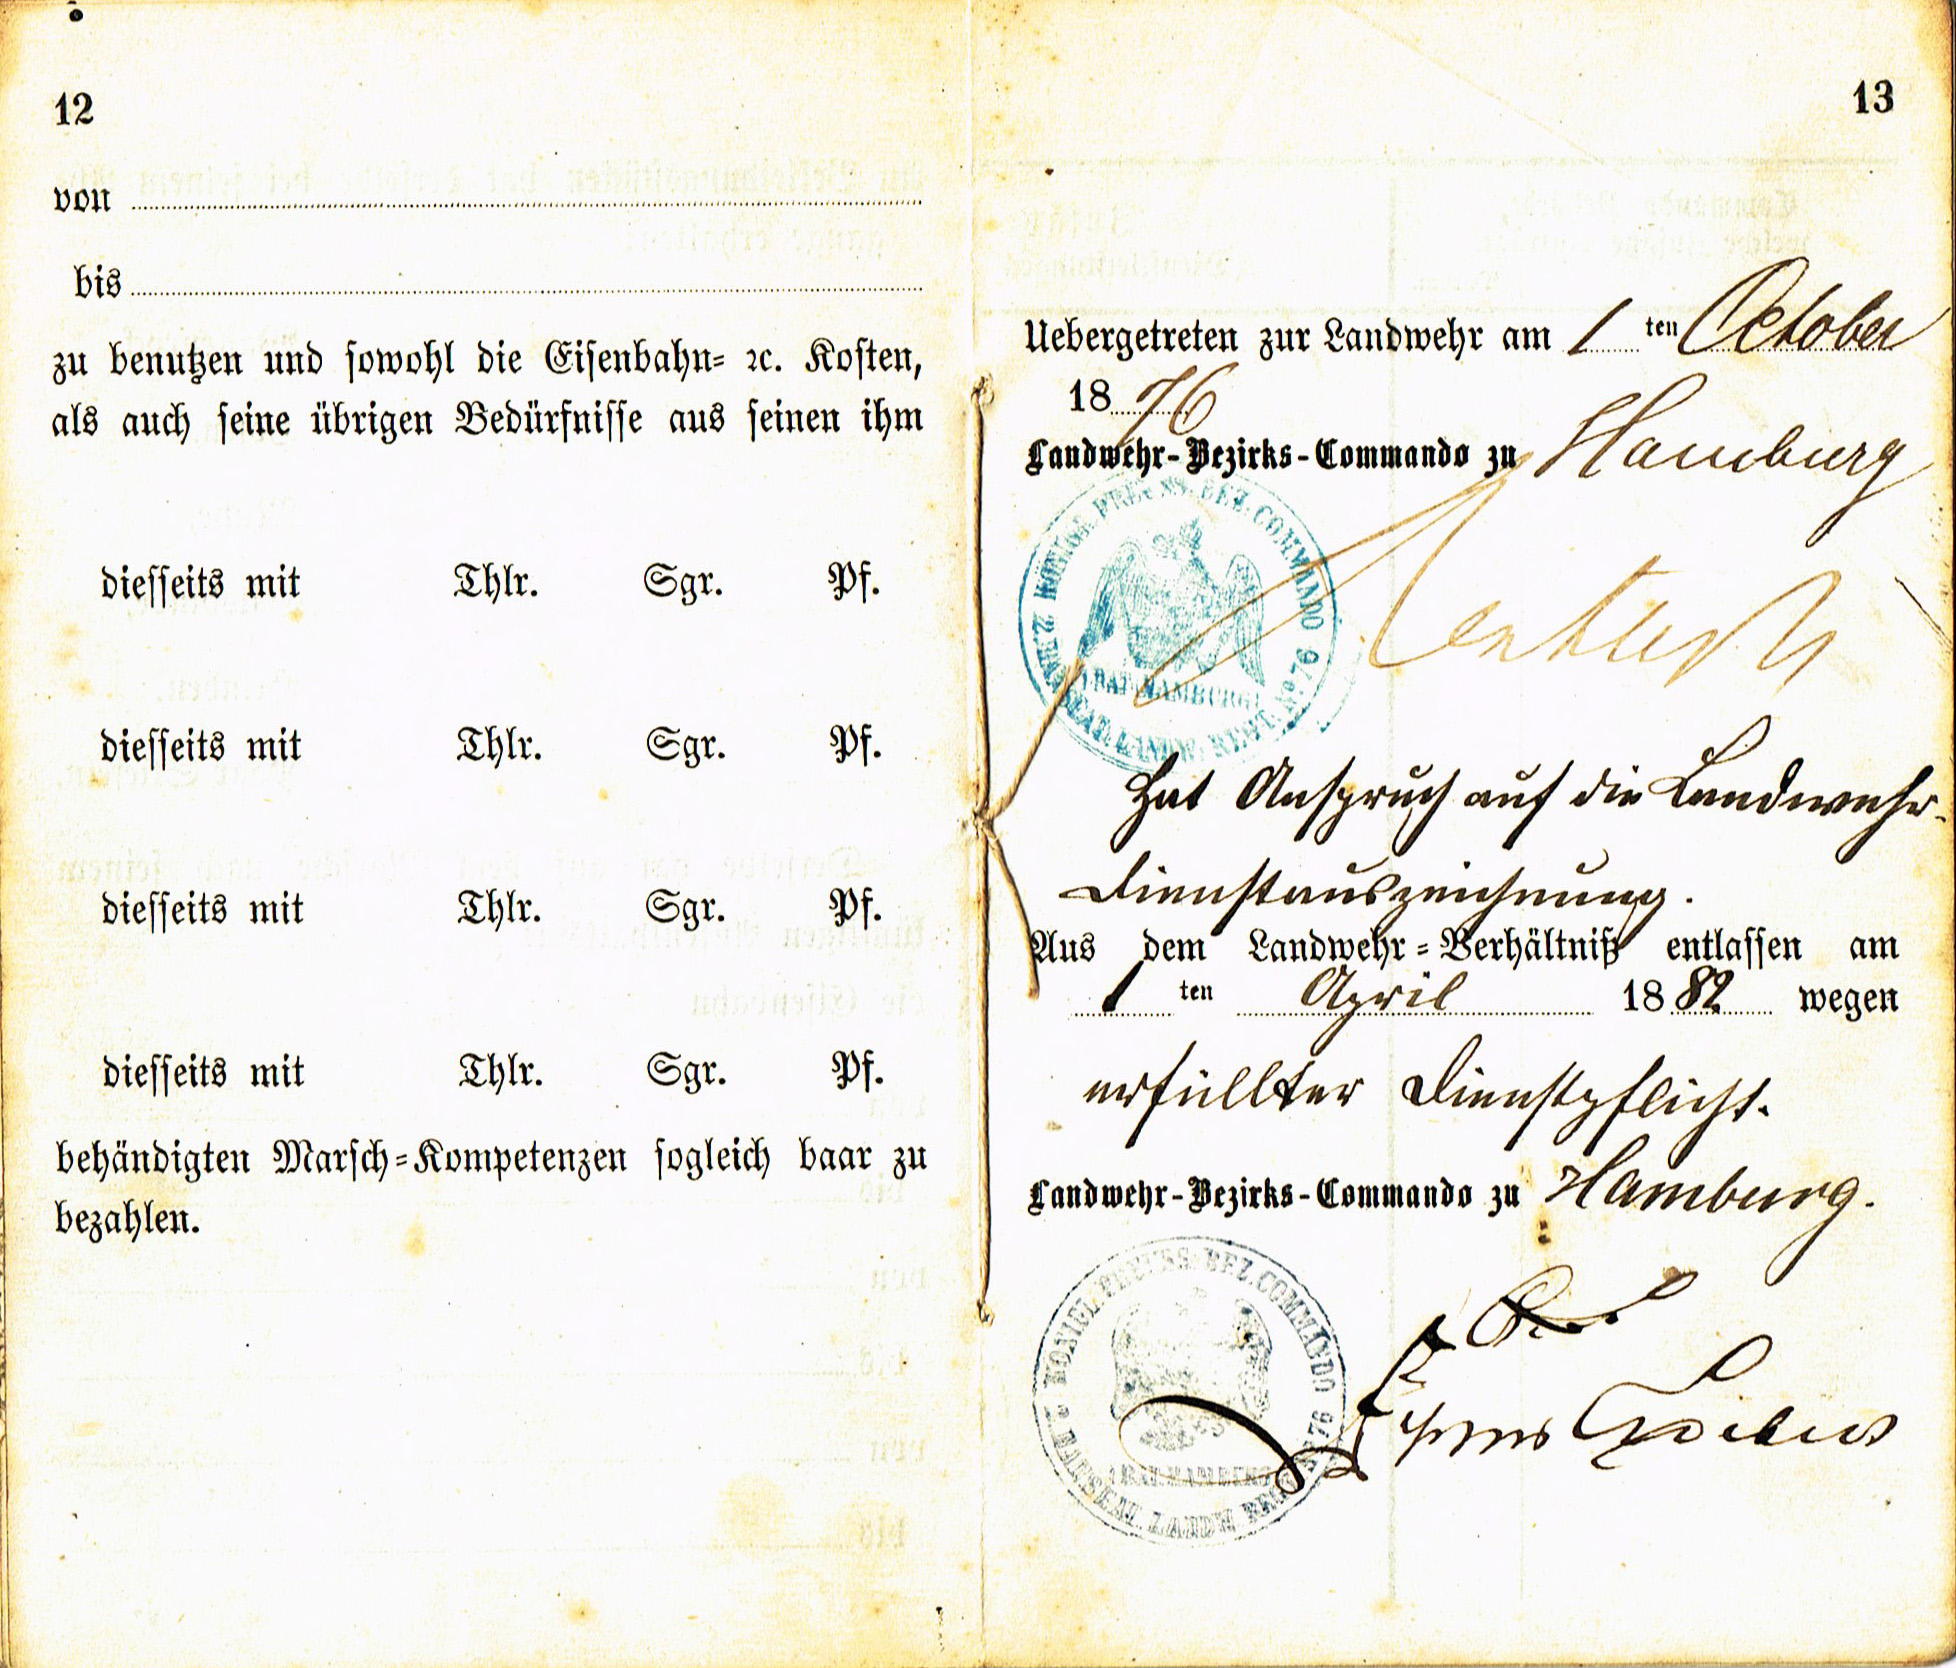 12
von
bis
zu benutzen und sowohl die Eisenbahn= ꝛc. Kosten,
als auch seine übrigen Bedürfnisse aus seinen ihm
diesseits mit Thlr. Sgr. Pf.
diesseits mit Thlr. Sgr. Pf.
diesseits mit Thlr. Sgr. Pf.
diesseits mit Thlr. Sgr. Pf.
behändigten Marsch=Kompetenzen sogleich baar zu
bezahlen.
13
Uebergetreten zur Landwehr am 1 ten October
1876
Landwehr-Bezirks-Commando zu Hamburg
KÖNIGL. PREUSS. BEZ. COMMANDO
2. HANSEAT. LANDW. REGT. No 76
1 BAT. HAMBURG
Hat Anspruch auf die Landwehr-
Dienstauszeichnung.
Aus dem Landwehr=Verhältniß entlassen am
1 ten April 1882 wegen
erfüllter Dienstpflicht.
Landwehr-Bezirks-Commando zu Hamburg.
KÖNIGL. PREUSS. BEZ. COMMANDO
HANSEAT. LANDW. REGT. No 76
1 BAT. HAMBURG